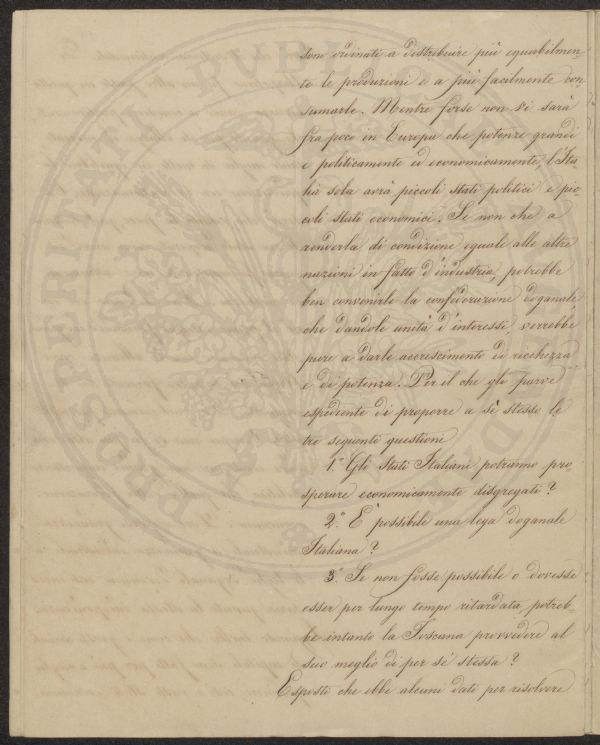 sono ordinati a distribuire più equabilmen-
te le produzioni e a più facilmente con-
sumarle. Mentre forse non vi sarà
fra poco in Europa che potenze grandi
e politicamente ed economicamente, l'Ita-
lia sola avrà piccoli stati politici e pic-
coli stati economici. Se non che a
renderla di condizione eguale alle altre
nazioni in fatto d'industria, potrebbe
ben convenirle la confederazione doganale
che dandole unità d'interessi, verrebbe
pure a darle accrescimento di ricchezza
e di potenza. Per il che gli parve
espediente di proporre a sè stesso le
tre seguenti questioni
1.º Gli Stati Italiani potranno pro-
sperare economicamente disgregati?
2.º È possibile una lega doganale
Italiana?
3.º Se non fosse possibile o dovesse
esser per lungo tempo ritardata, potreb-
be intanto la Toscana provvedere al
suo meglio di per sè stessa?
Esposti che ebbe alcuni dati per risolvere
PROSPERITÀ PUBB